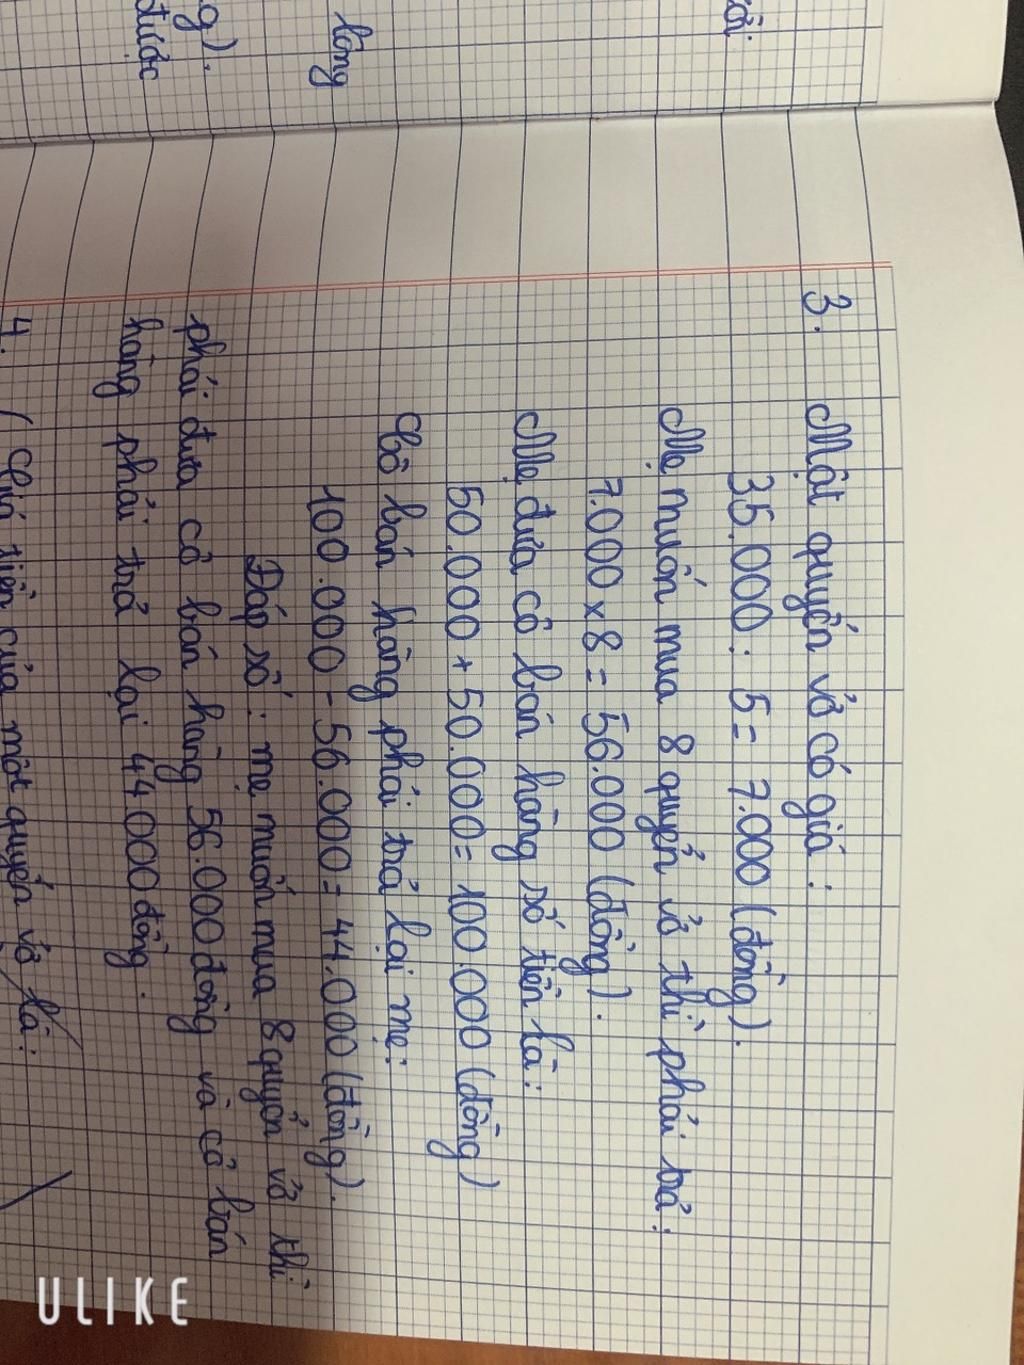 lông
g).
được
3. Một quyển vở có giá:
35.000 : 5 = 7.000 (đồng).
Mẹ muốn mua 8 quyển vở thì phải trả:
7.000 x 8 = 56.000 (đồng).
Mẹ đưa cô bán hàng số tiền là:
50.000 + 50.000 = 100.000 (đồng)
Cô bán hàng phải trả lại mẹ:
100.000 - 56.000 = 44.000 (đồng).
Đáp số: mẹ muốn mua 8 quyển vở thì
phải đưa cô bán hàng 56.000 đồng và cô bán
hàng phải trả lại 44.000 đồng.
4. ( Giá tiền của một quyển vở là:
ULIKE